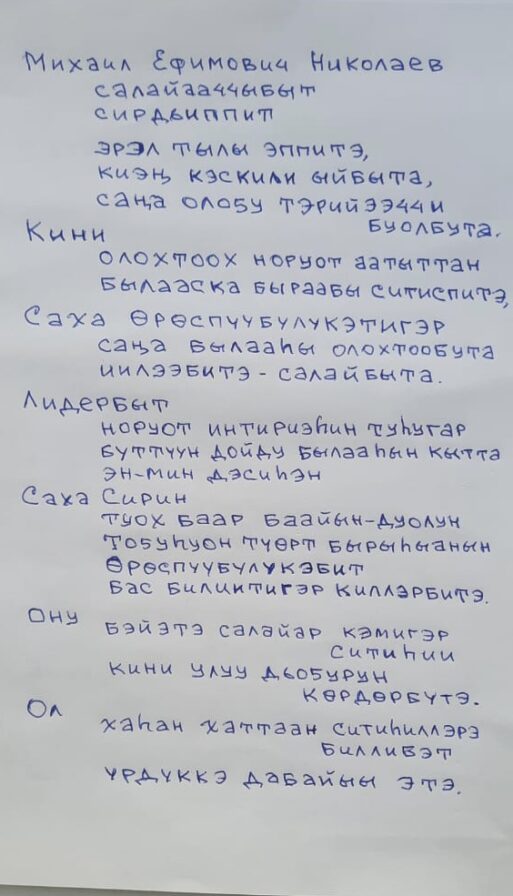 Михаил Ефимович Николаев
салайааччыбыт
сирдьиппит
эрэл тылы эппитэ,
киэҥ кэскили ыйбыта,
саҥа олоҕу тэрийээччи
буолбута.
Кини
олохтоох норуот аатыттан
былааска бырааҕы ситиспитэ,
Саха Өрөспүүбүлүкэтигэр
саҥа былааһы олохтообута
иилээбитэ - салайбыта.
Лидербыт
норуот интириэһин туһугар
бүттүүн дойду былааһын кытта
эн-мин дэсиһэн
Саха Сирин
туох баар баайын-дуолун
тоҕуһуон түөрт бырыһыанын
Өрөспүүбүлүкэбит
бас билиитигэр киллэрбитэ.
Ону
бэйэтэ салайар кэмигэр
ситиһии
кини улуу дьоҕурун
көрдөрбүтэ.
Ол
хаһан хаттаан ситиһиллэрэ
биллибэт
үрдүккэ дабайыы этэ.